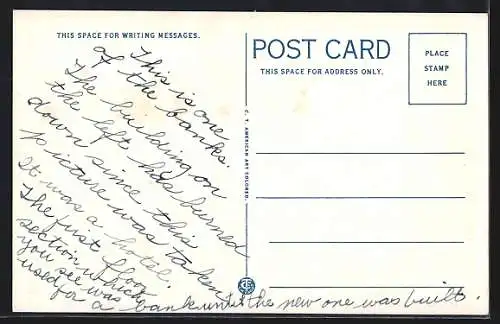 THIS SPACE FOR WRITING MESSAGES.
This is one
of the banks.
The building on
the left has burned
down since this
picture was taken
It was a hotel.
The first floor
section which
you see was
used for a bank until the new one was built.
POST CARD
THIS SPACE FOR ADDRESS ONLY.
PLACE
STAMP
HERE
C. T. AMERICAN ART COLORED.